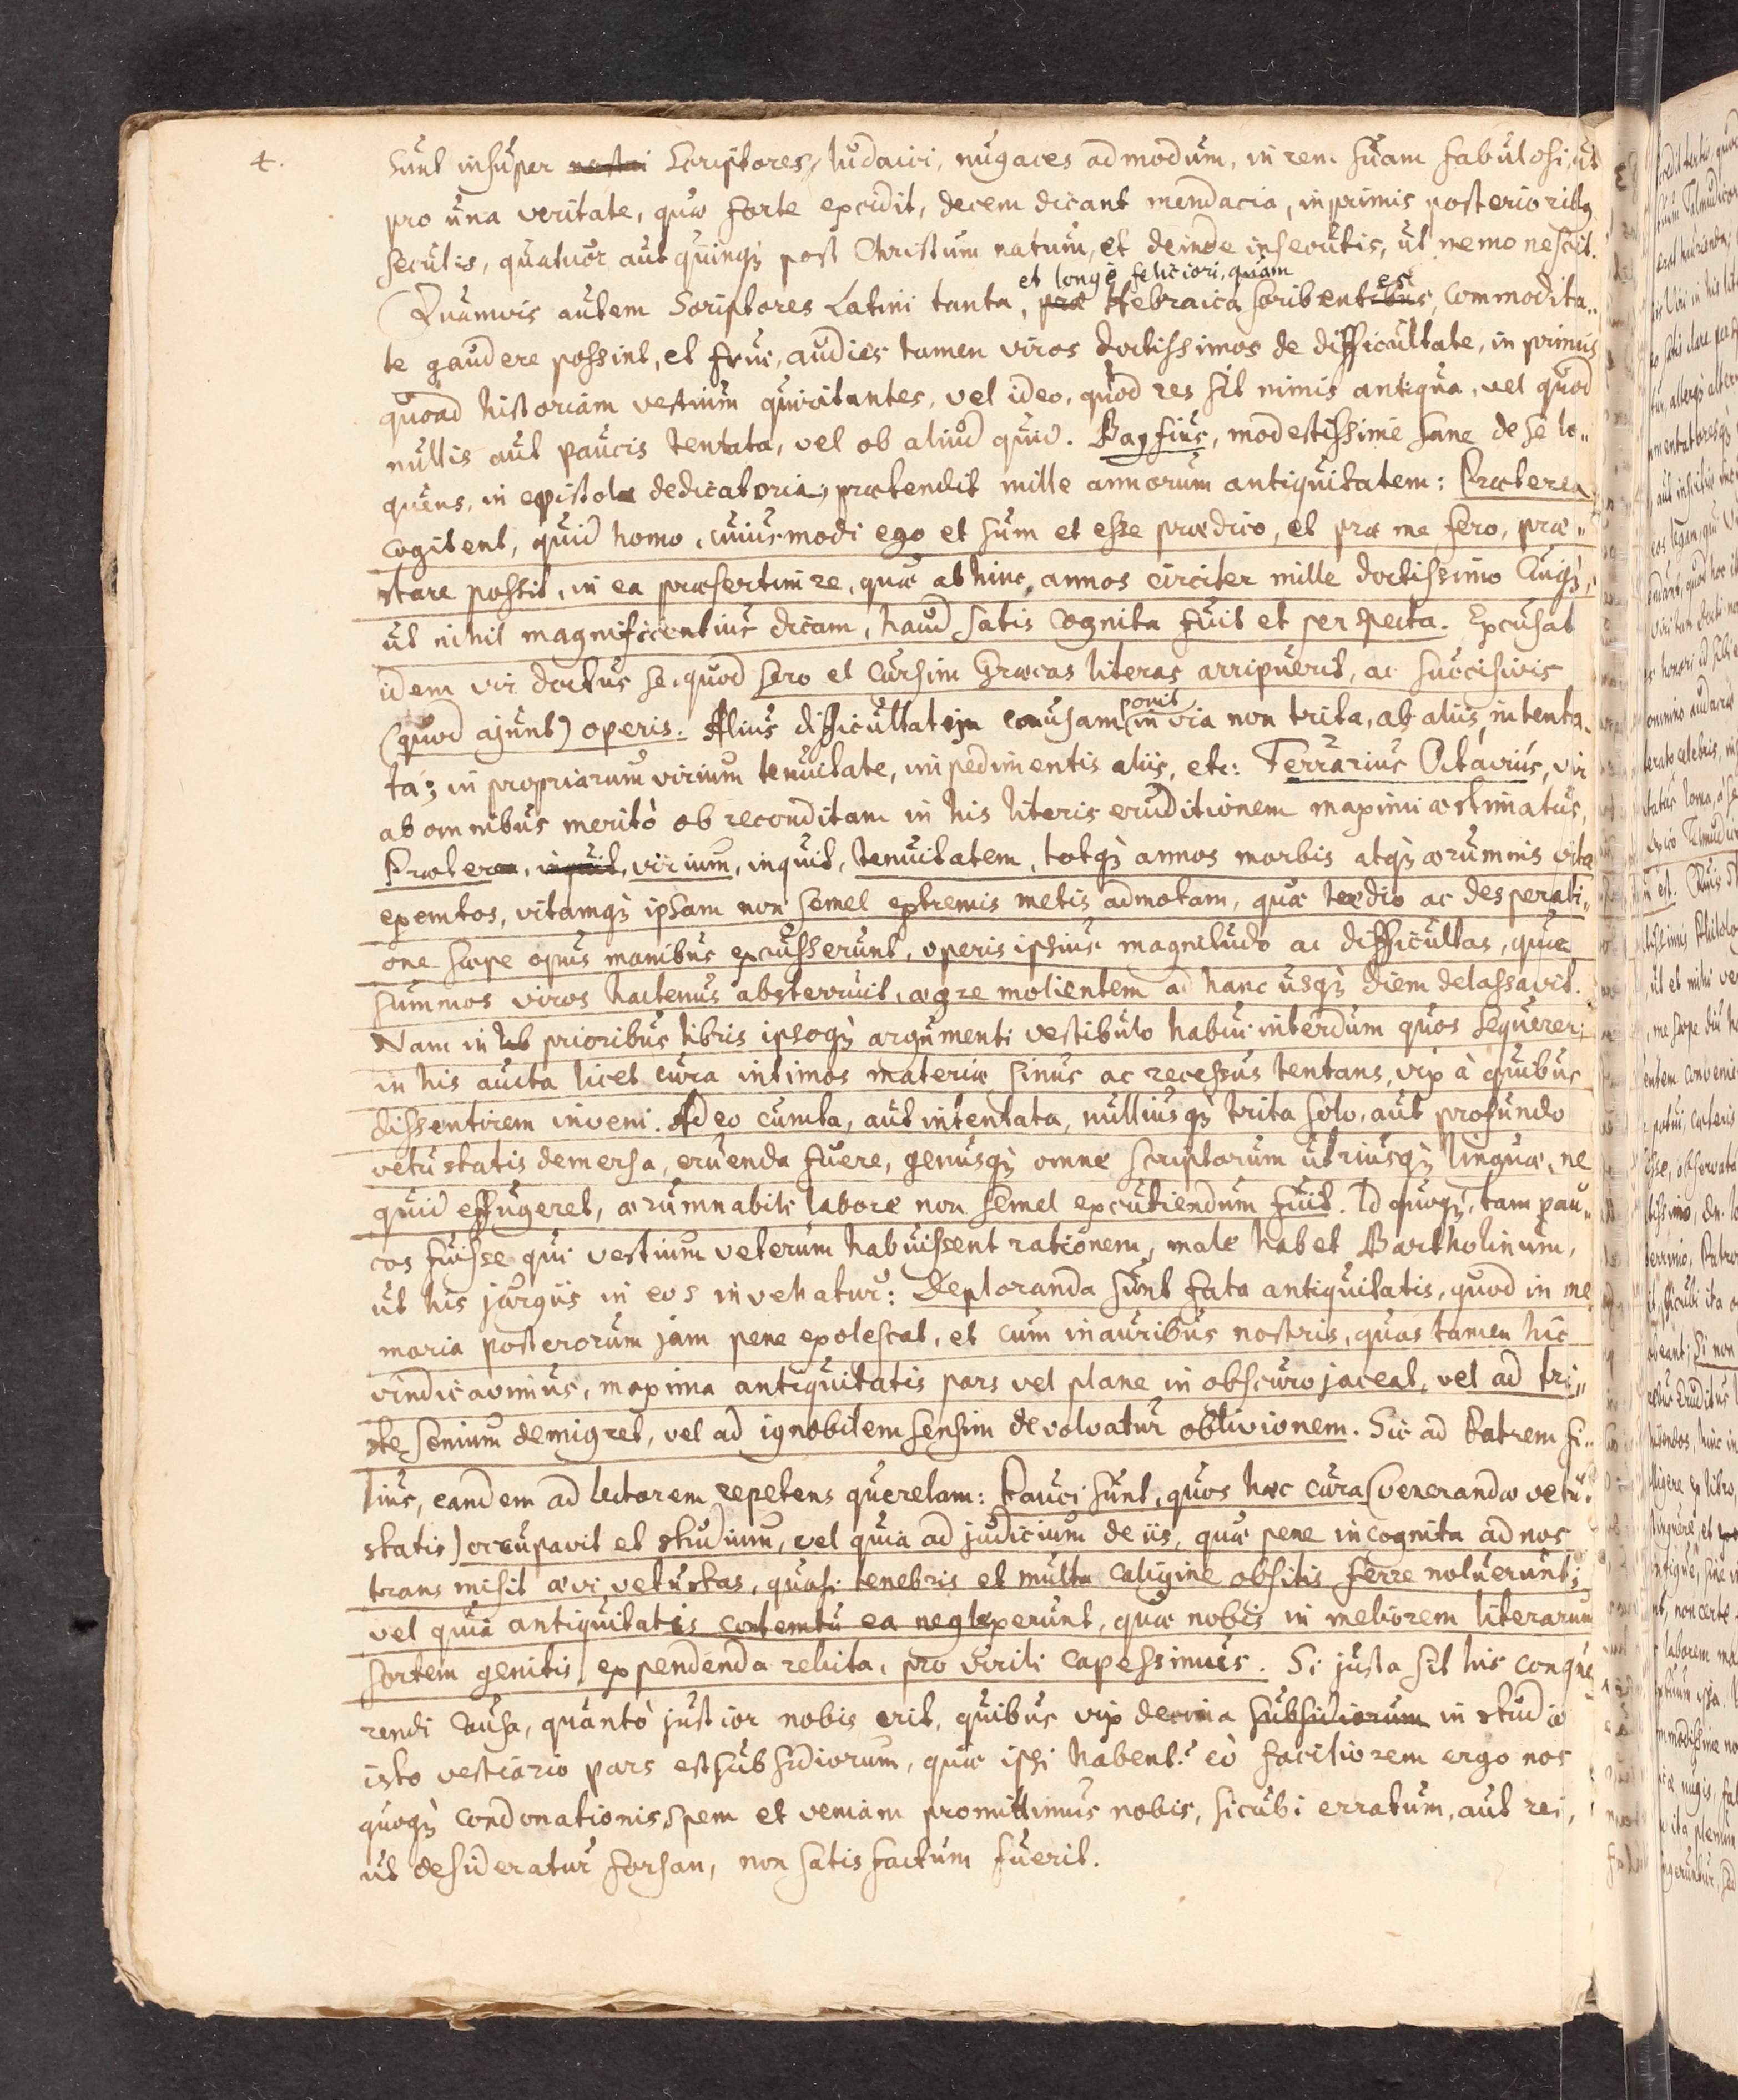 4.
Sunt insuper Scriptores Iudaici, nugaces admodum, in rem suam fabulosi, ut
pro una veritate, quæ forte excidit, decem dicant mendacia, inprimis posteriorib9
seculis, quatuor aut quinq3 post Christum natum, et deinde insecutis, ut nemo nescit.
et longè feliciori, quàm
Quamvis autem Scriptores Latini tanta, præ Hebraica scribentes, commodita„
te gaudere possint, et frui, audies tamen viros doctissimos de difficultate, in primis
quoad historiam vestium quiritantes, vel ideo, quod res sit nimis antiqua, vel quod
nullis aut paucis tentata, vel ob aliud quid. Bayfius, modestissimè sane de se lo„
quens, in epistola dedicatoria, prætendit mille annorum antiquitatem: Præterea
cogitent, quid homo, cuiusmodi ego et sum et esse prædico, et præ me fero, præ„
stare possit, in ea præsertim re, quæ abhinc annos circiter mille doctissimo cuiq3,
ut nihil magnificentius dicam, haud satis cognita fuit et perspecta. Excusat
idem vir doctus se, quod sero et cursim Græcas literas arripuerit, ac succisivis
ponit
(quod ajunt) operis. Alius difficultatem causam in via non trita, ab aliis intenta„
ta; in propriarum virium tenuitate, impedimentis aliis, etc: Ferrarius Octavius, vir
ab omnibus meritò ob reconditam in his literis eruditionem maximi æstimatus,
Præterea, inquit, virium, inquit, tenuitatem, totq3 annos morbis atq3 ærumnis vitæ
exemtos, vitamq3 ipsam non semel extremis metis admotam, quæ tædio ac desperati„
one sæpe opus manibus excusserunt, operis ipsius magnitudo ac difficultas, quæ
summos viros hactenus absterruit, ægre molientem ad hanc usq3 diem delassavit.
Nam in prioribus libris ipsoq3 argumenti vestibulo habui interdum quos sequerer;
in his aucta licet cura intimos materiæ sinus ac recessus tentans, vix à quibus
dissentirem inveni. Adeo cuncta, aut intentata, nulliusq3 trita solo, aut profundo
vetustatis demersa, eruenda fuere, genusq3 omne scriptorum utriusq3 linguæ, ne
quid effugeret, ærumnabili labore non semel excutiendum fuit. Id quoq3, tam pau„
cos fuisse qui vestium veterum habuissent rationem, male habet Bartholinum,
ut his jurgiis in eos invehatur: Deploranda sunt fata antiquitatis, quod in me
moria posterorum jam pene exolescat, et cum inauribus nostris, quas tamen hic
vindicavimus, maxima antiquitatis pars vel plane in obscuro jaceat, vel ad tri„
ste senium demigret, vel ad ignobilem sensim devolvatur oblivionem. Sic ad Patrem fi„
lius, eandem ad lectorem repetens querelam: Pauci sunt, quos hæc cura (venerandæ vetu„
statis) occupavit et studium, vel quia ad judicium de iis, quæ pene incognita ad nos
transmisit ævi vetustas, quasi tenebris et multa caligine obsitis ferre noluerunt;
vel quia antiquitatis contemtu ea neglexerunt, quæ nobis in meliorem literarum
sortem genitis, expendenda relicta, pro virili capessimus. Si justa sit his conque
rendi causa, quantò justior nobis erit, quibus vix decima subsidiorum in studio
isto vestiario pars est subsidiorum, quæ ipsi habent? eò faciliorem ergo nos
quoq3 condonationis spem et veniam promittimus nobis, sicubi erratum, aut rei,
ut desideratur forsan, non satisfactum fuerit.